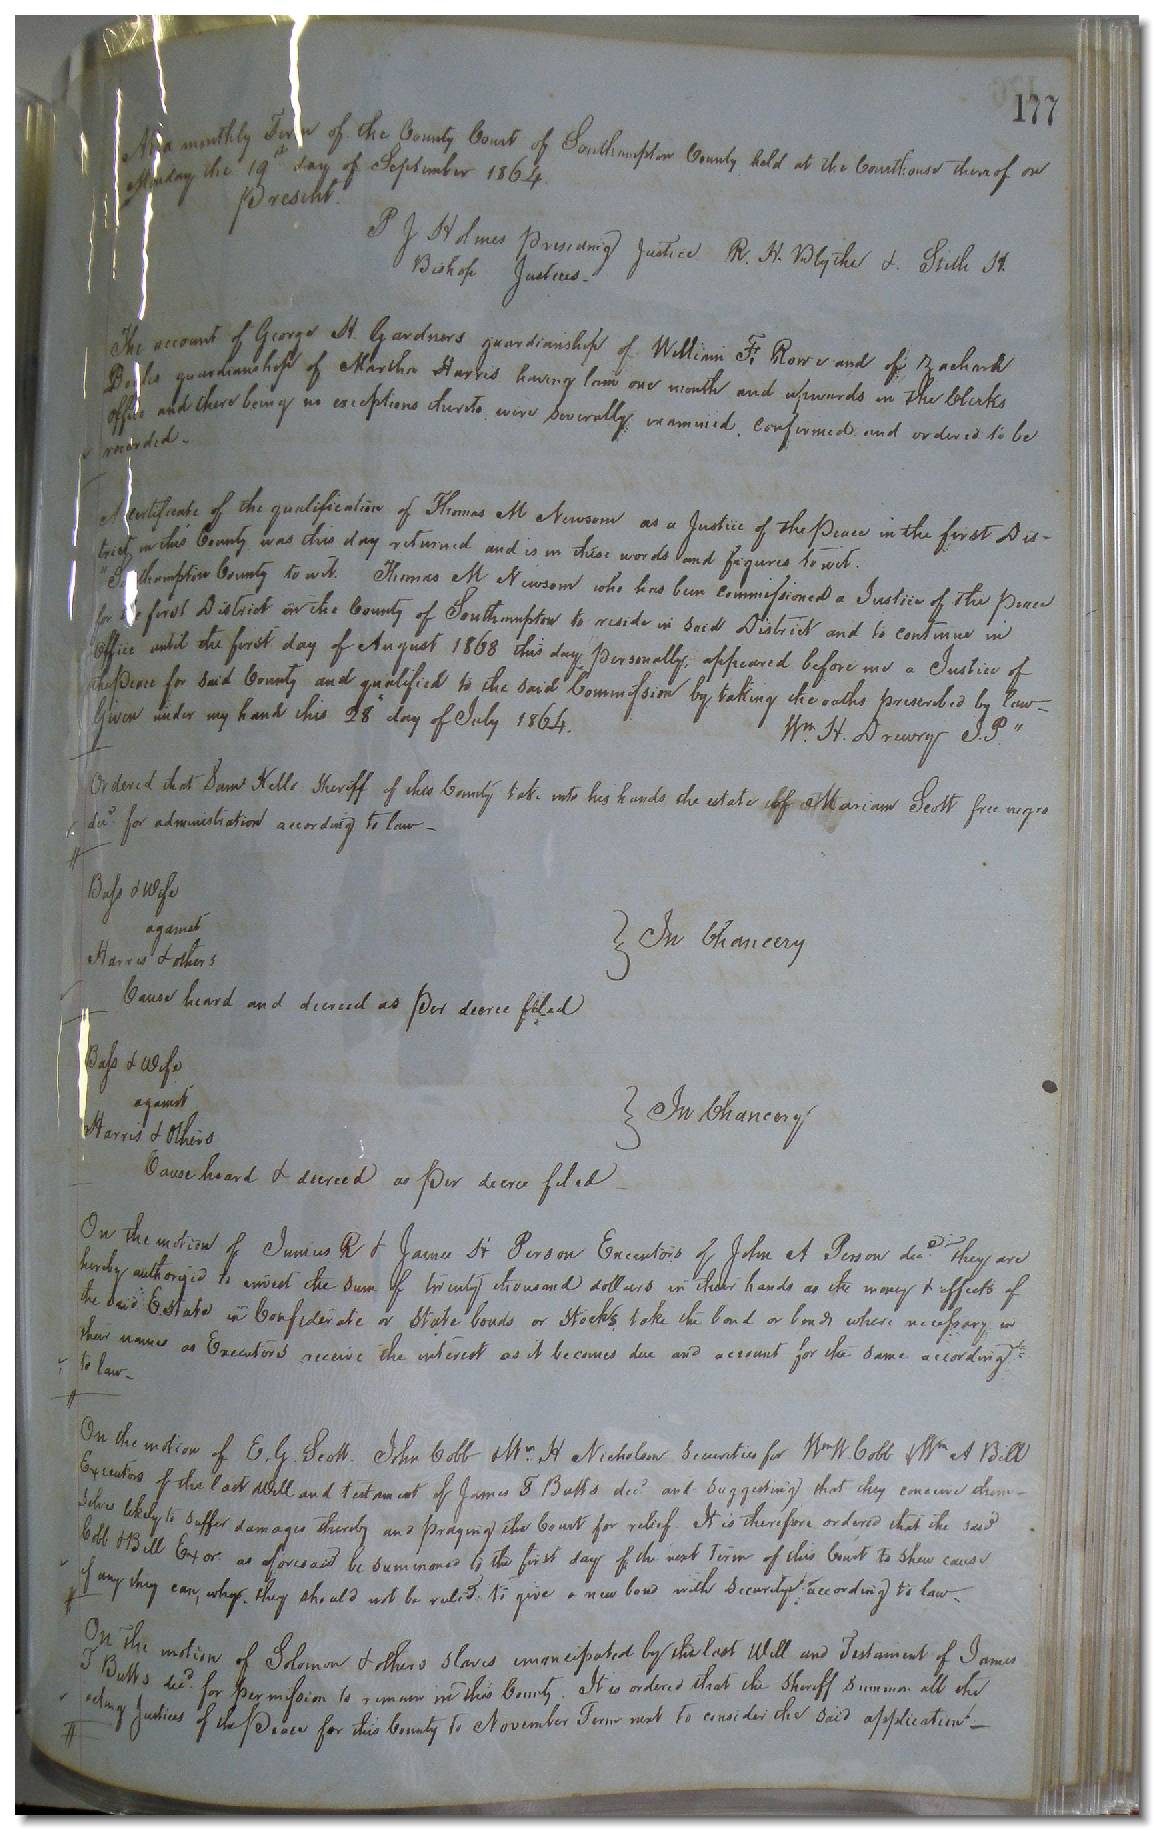 177
At a monthly Term of the County Court of Southampton County held at the Courthouse thereof on
Monday the 19th day of September 1864.
Present.
P J Holmes Presiding Justice R. H. Blythe & Sith H.
Bishop Justices-
The account of George H. Gardners guardianship of William F. Rowe and of Zachack
guardianship of Martha Harris having lain one month and upwards in the Clerks
Office and there being no exceptions thereto were severally examined, confirmed and ordered to be
recorded-
A certificate of the qualification of Thomas M Newsom as a Justice of the Peace in the first Dis-
trict in this County was this day returned and is in these words and figures to wit.
"Southampton County to wit. Thomas M Newsom who has been commissioned a Justice of the Peace
for the first District in the County of Southampton to reside in said District and to continue in
Office until the first day of August 1868 this day personally appeared before me a Justice of
the Peace for said County and qualified to the said Commission by taking the oaths prescribed by law-
Given under my hand this 28th day of July 1864. Wm. H. Drewry J.P."
Ordered that Sam Kello Sheriff of this County take into his hands the estate of Mariam Scott free negro
decd. for administration according to law-
Bass & Wife
against
Harris & others
} In Chancery
Cause heard and decreed as per decree filed
Bass & Wife
against
Harris & Others
} In Chancery
Cause heard & decreed as per decree filed
On the motion of Junius R & James H Person Executors of John A Person decd. they are
hereby authorized to invest the sum of twenty thousand dollars in their hands as the money & effects of
the said Estate in Confederate or State bonds or Stocks take the bond or bonds where necessary in
their names as Executors receive the interest as it becomes due and account for the same according to
to law-
On the motion of E. G. Scott. John Cobb & Wm. H Nicholson Securities for Wm W. Cobb & Wm A Bell
Executors of the last Will and testament of James T Butts decd. and suggesting that they conceive them-
selves likely to suffer damages thereby and praying the Court for relief. It is therefore ordered that the said
Cobb & Bell Exor. as aforesaid be summoned to the first day of the next Term of this Court to shew cause
if any they can, why they should not be ruled to give a new bond with security according to law-
On the motion of Solomon & others Slaves emancipated by the last Will and Testament of James
T Butts decd. for permission to remain in this County. It is ordered that the Sheriff Summon all the
acting Justices of the Peace for this County to November Term next to consider the said application-